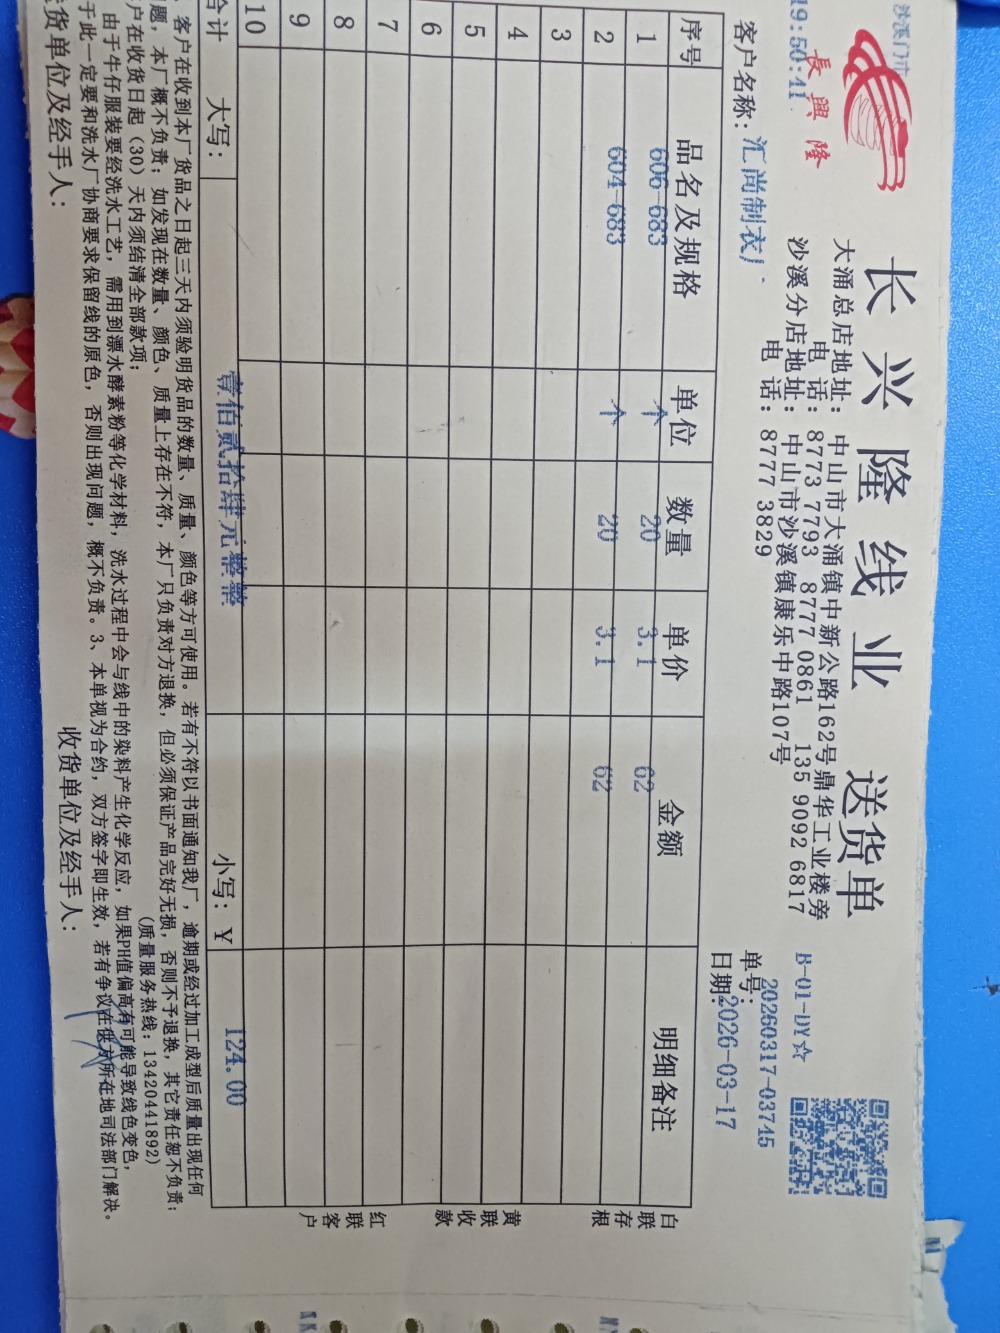 沙溪门市
19:50:41
長興隆
长兴隆线业 送货单
大涌总店地址：中山市大涌镇中新公路162号鼎华工业楼旁
电 话：8773 7793 8777 0861 135 9092 6817
沙溪分店地址：中山市沙溪镇康乐中路107号
电 话：8777 3829
B-01-DY☆
单号：20260317-03745
客户名称：汇尚制衣厂
日期：2026-03-17
序号 品名及规格 单位 数量 单价 金额 明细备注
1 606-683 个 20 3.1 62
2 604-683 个 20 3.1 62
3
4
5
6
7
8
9
10
合计 大写：壹佰贰拾肆元整整 小写：¥ 124.00
白联存根
黄联收款
红联客户
客户在收到本厂货品之日起三天内须验明货品的数量、质量、颜色等方可使用。若有不符以书面通知我厂，逾期或经过加工成型后质量出现任何
题，本厂概不负责；如发现在数量、颜色、质量上存在不符，本厂只负责对方退换，但必须保证产品完好无损，否则不予退换，其它责任恕不负责；
户在收货日起（30）天内须结清全部款项； （质量服务热线：13420441892）
由于牛仔服装要经洗水工艺，需用到漂水酵素粉等化学材料，洗水过程中会与线中的染料产生化学反应，如果PH值偏高有可能导致线色变色，
于此一定要和洗水厂协商要求保留线的原色，否则出现问题，概不负责。3、本单视为合约，双方签字即生效，若有争议在供方所在地司法部门解决。
货单位及经手人： 收货单位及经手人：